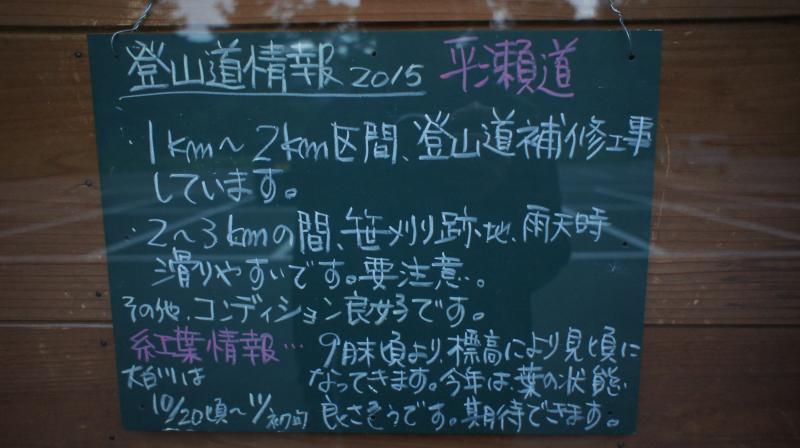 登山道情報 2015 平瀬道
・1km〜2km区間、登山道補修工事
しています。
・2〜3kmの間、笹刈り跡地、雨天時
滑りやすいです。要注意。
その他、コンディション良好です。
紅葉情報… 9月末頃より、標高により見頃に
なってきます。今年は葉の状態
良さそうです。期待できます。
大白川は
10/20頃〜11/初旬